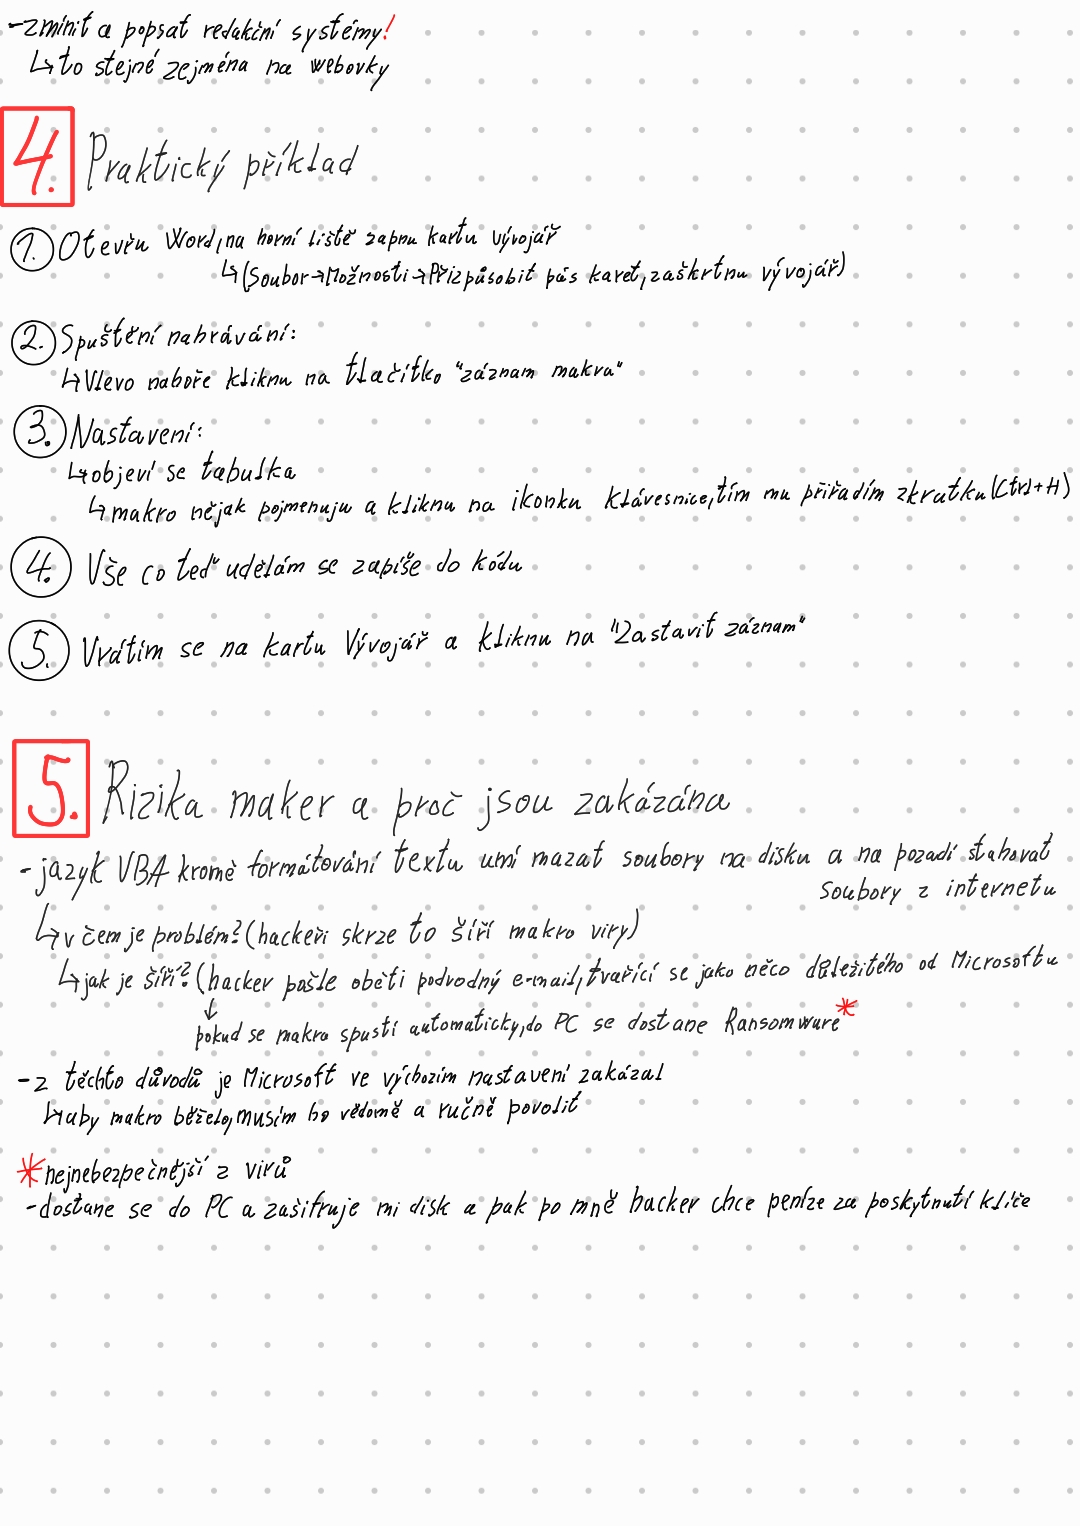 -zmínit a popsat redakční systémy!
↳to stejné zejména na webovky
4. Praktický příklad
1. Otevřu Word, na horní liště zapnu kartu vývojář
↳(Soubor→Možnosti→Přizpůsobit pás karet, zaškrtnu vývojář)
2. Spuštění nahrávání:
↳Vlevo nahoře kliknu na tlačítko "záznam makra"
3. Nastavení:
↳objeví se tabulka
↳makro nějak pojmenuju a kliknu na ikonku klávesnice, tím mu přiřadím zkratku (Ctrl+H)
4. Vše co teď udělám se zapíše do kódu
5. Vrátím se na kartu Vývojář a kliknu na "Zastavit záznam"
5. Rizika maker a proč jsou zakázána
-jazyk VBA kromě formátování textu umí mazat soubory na disku a na pozadí stahovat
soubory z internetu
↳v čem je problém? (hackeři skrze to šíří makro viry)
↳jak je šíří? (hacker pošle oběti podvodný e-mail, tvařící se jako něco důležitého od Microsoftu
↓
pokud se makro spustí automaticky, do PC se dostane Ransomware*
-z těchto důvodů je Microsoft ve výchozím nastavení zakázal
↳aby makro běželo, musím ho vědomě a ručně povolit
*nejnebezpečnější z virů
-dostane se do PC a zašifruje mi disk a pak po mně hacker chce peníze za poskytnutí klíče